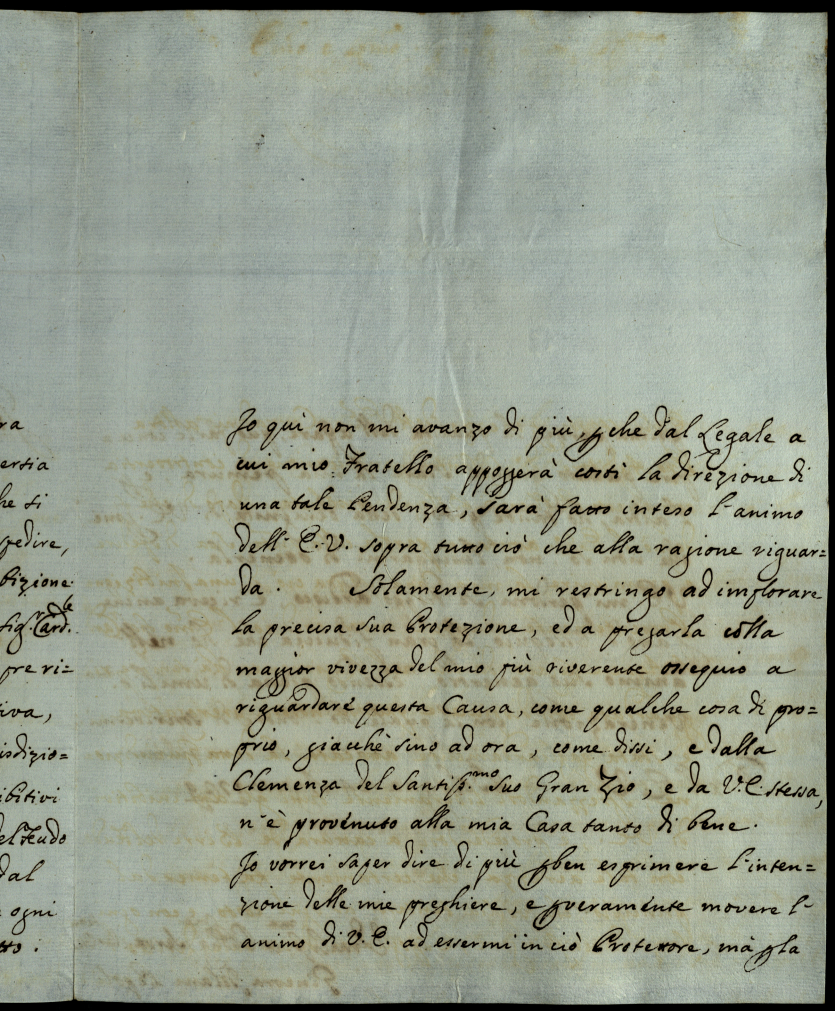 ra
ertia
he si
spedire,
bizione
Sig.r Card.le
pre ri=
tiva,
isdizio=
ibitivi
del Feudo
dal
e ogni
tto.
Io quì non mi avanzo di più, pche dal Legale a
cui mio Fratello appoggerà costì la direzione di
una tale Pendenza, sarà fatto inteso l'animo
dell' E.V. sopra tutto ciò che alla ragione riguar=
da. Solamente, mi restringo ad implorare
la precisa sua Protezione, ed a pregarla colla
maggior vivezza del mio più riverente ossequio a
riguardare questa Causa, come qualche cosa di pro=
prio, giacchè sino ad ora, come dissi, e dalla
Clemenza del Santiss.mo suo Gran Zio, e da V.E. stessa,
n'è provenuto alla mia Casa tanto di bene.
Io vorrei saper dire di più p ben esprimere l'inten=
zione delle mie preghiere, e p veramente movere l'
animo di V.E. ad essermi in ciò Protettore, mà p la